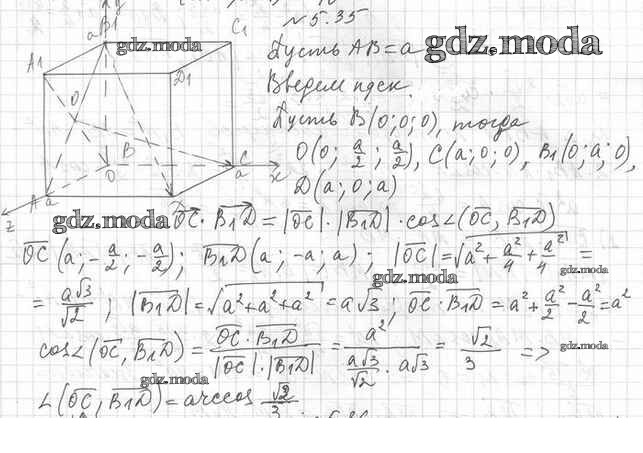 N 5.35
Пусть AB = a
gdz.moda
gdz.moda
Введем пдск.
Пусть B(0;0;0), тогда
O(0; a/2; a/2), C(a;0;0), B1(0;a;0),
D(a;0;a)
a B1 C1
A1 D1
O
B C
O a x
A a D
z
gdz.moda OC · B1D = |OC| · |B1D| · cos∠(OC, B1D)
OC (a; -a/2; -a/2); B1D (a; -a; a); |OC| = √(a² + a²/4 + a²/4) =
gdz.moda
gdz.moda
= a√3/√2; |B1D| = √(a² + a² + a²) = a√3; OC · B1D = a² + a²/2 - a²/2 = a²
cos∠(OC, B1D) = OC · B1D / |OC| · |B1D| = a² / (a√3/√2 · a√3) = √2/3 =>
gdz.moda
gdz.moda
∠(OC, B1D) = arccos √2/3